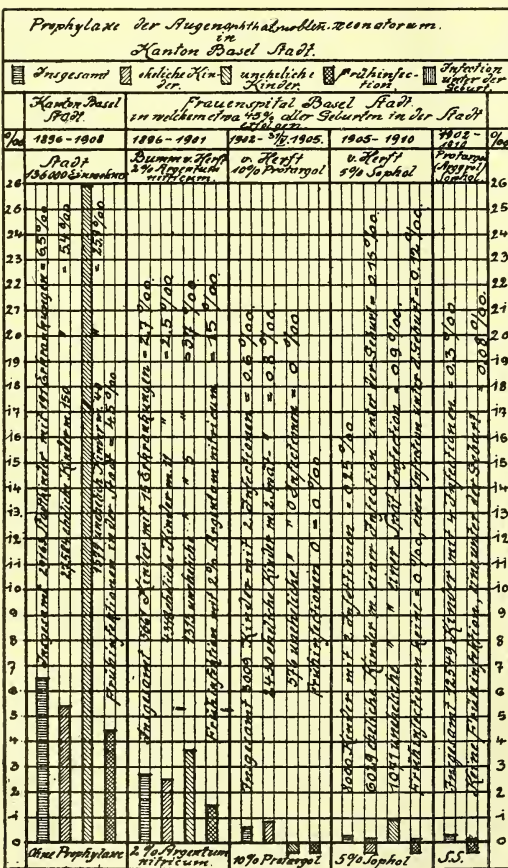 Prophylaxe der Augenophthalmoblen.neonatorum.
in
Kanton Basel Stadt.
Insgesamt
eheliche Kinder.
uneheliche Kinder.
Frühinfection.
Infection unter der Geburt.
Kanton Basel Stadt.
Frauenspital Basel Stadt.
in welchem etwa 45% aller Geburten in der Stadt
erfolgen
‰ 1896-1908 1896-1901 1902- 1905. 1905-1910 1902-1910 ‰
Stadt
136000 Einwohner
Bumm v. Herff
2% Argentum
nitricum.
v. Herff
10% Protargol
v. Herff
5% Sophol
Protargol
(Argyrol)
Sophol.
26
25
24
23
22
21
20
19
18
17
16
15
14
13
12
11
10
9
8
7
6
5
4
3
2
1
0
Insgesamt Kinder mit Erkrankungen = 6,5 ‰
ehelich. Kindern 150 " = 5,4 ‰
unehelich. Kinder m. 40 " = 25,9 ‰
Frühinfektionen in der Stadt = 4,5 ‰
Insgesamt Kinder mit Erkrankungen = 2,7 ‰
eheliche Kinder mit " = 2,5 ‰
1313 uneheliche " " 5 = 3,7 ‰
Frühinfektion mit 2% Argentum nitricum = 1,5 ‰
Insgesamt 3009 Kinder mit 2 Infectionen = 0,6 ‰
2430 eheliche Kinder m. 2 " = 0,8 ‰
576 uneheliche " " 0 Infectionen = 0 ‰
Frühinfectionen 0 = 0 ‰
8000 Kinder mit 2 Infectionen = 0,25 ‰
eheliche Kinder m. einer Infection unter der Geburt = 0,15 ‰
uneheliche " " einer Infection = 0,9 ‰.
Frühinfectionen keine = 0 ‰, eine Infection unter d. Geburt = 0,12 ‰
Insgesamt 12549 Kinder mit 4 Infectionen = 0,3 ‰
Keine Frühinfektion, eine unter der Geburt = 0,08 ‰
Ohne Prophylaxe
2% Argentum
nitricum.
10% Protargol
5% Sophol
S.S.